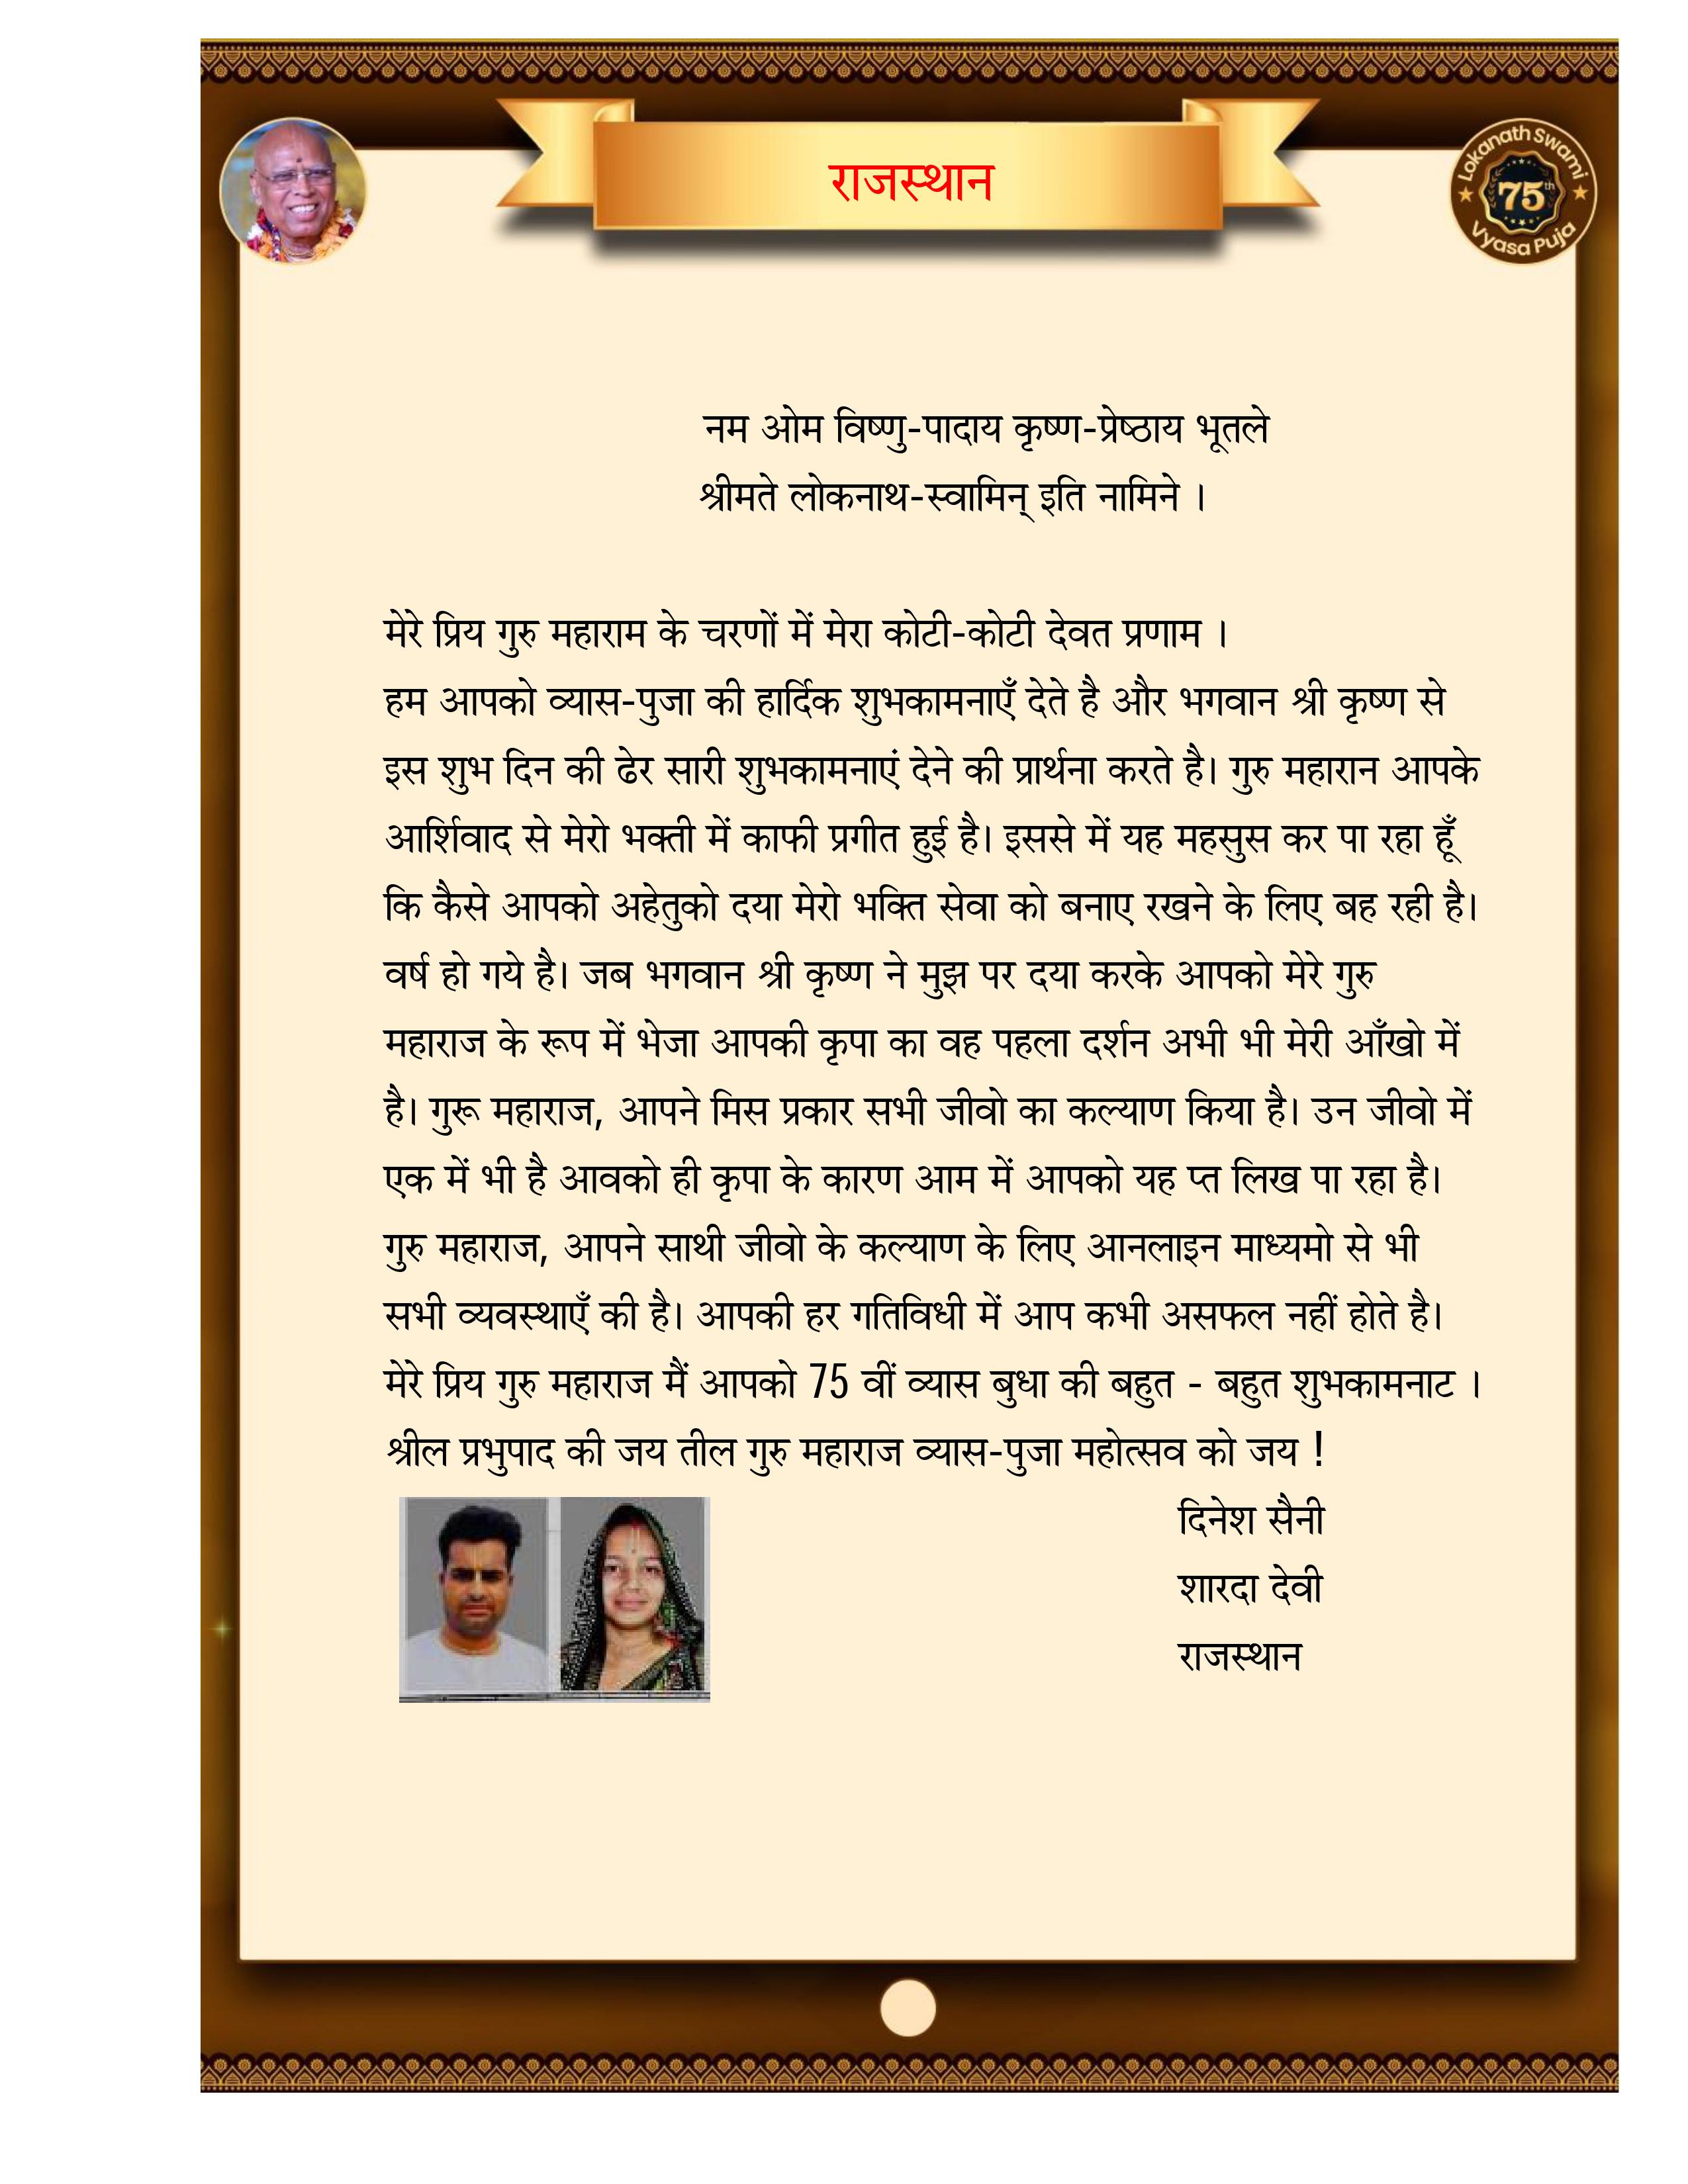 राजस्थान
Lokanath Swami
75th
Vyasa Puja
नम ओम विष्णु-पादाय कृष्ण-प्रेष्ठाय भूतले
श्रीमते लोकनाथ-स्वामिन् इति नामिने ।
मेरे प्रिय गुरु महाराम के चरणों में मेरा कोटी-कोटी देवत प्रणाम ।
हम आपको व्यास-पुजा की हार्दिक शुभकामनाएँ देते है और भगवान श्री कृष्ण से
इस शुभ दिन की ढेर सारी शुभकामनाएं देने की प्रार्थना करते है। गुरु महारान आपके
आर्शिवाद से मेरो भक्ती में काफी प्रगीत हुई है। इससे में यह महसुस कर पा रहा हूँ
कि कैसे आपको अहेतुको दया मेरो भक्ति सेवा को बनाए रखने के लिए बह रही है।
वर्ष हो गये है। जब भगवान श्री कृष्ण ने मुझ पर दया करके आपको मेरे गुरु
महाराज के रूप में भेजा आपकी कृपा का वह पहला दर्शन अभी भी मेरी आँखो में
है। गुरू महाराज, आपने मिस प्रकार सभी जीवो का कल्याण किया है। उन जीवो में
एक में भी है आवको ही कृपा के कारण आम में आपको यह प्त लिख पा रहा है।
गुरु महाराज, आपने साथी जीवो के कल्याण के लिए आनलाइन माध्यमो से भी
सभी व्यवस्थाएँ की है। आपकी हर गतिविधी में आप कभी असफल नहीं होते है।
मेरे प्रिय गुरु महाराज मैं आपको 75 वीं व्यास बुधा की बहुत - बहुत शुभकामनाट ।
श्रील प्रभुपाद की जय तील गुरु महाराज व्यास-पुजा महोत्सव को जय !
दिनेश सैनी
शारदा देवी
राजस्थान